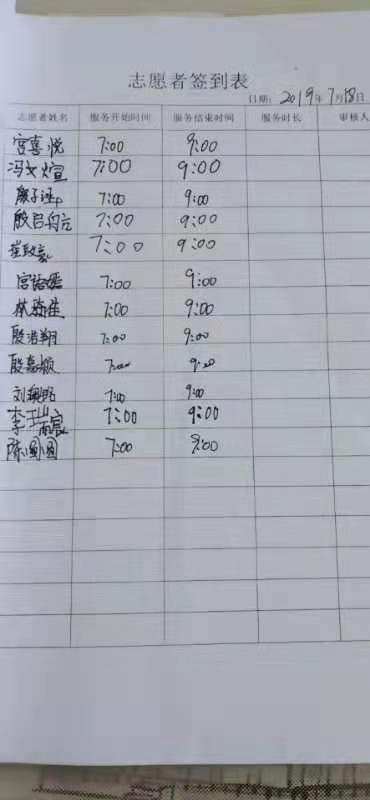 志愿者签到表
日期：2019年7月18日
志愿者姓名 服务开始时间 服务结束时间 服务时长 审核人
宫喜悦 7:00 9:00
冯文煊 7:00 9:00
7:00 9:00
殷 7:00 9:00
崔 7:00 9:00
宫 7:00 9:00
林 7:00 9:00
殷浩翔 7:00 9:00
殷嘉 7:00 9:00
刘 7:00 9:00
李 宸 7:00 9:00
陈圆圆 7:00 9:00